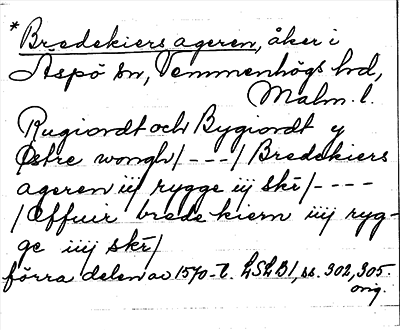 *Bredekiers ageren, åker i
Aspö sn, Vemmenhögs hd,
Malm. l.
Rugiordt och Bygiordt y
Østre wongh/ - - - / Bredekiers
ageren iij rygge iij skr/ - - - -
/ Offuir bredekiern iiij ryg-
ge iiij skr/
förra delen av 1570-t. LSLB1, ss. 302, 305.
orig.